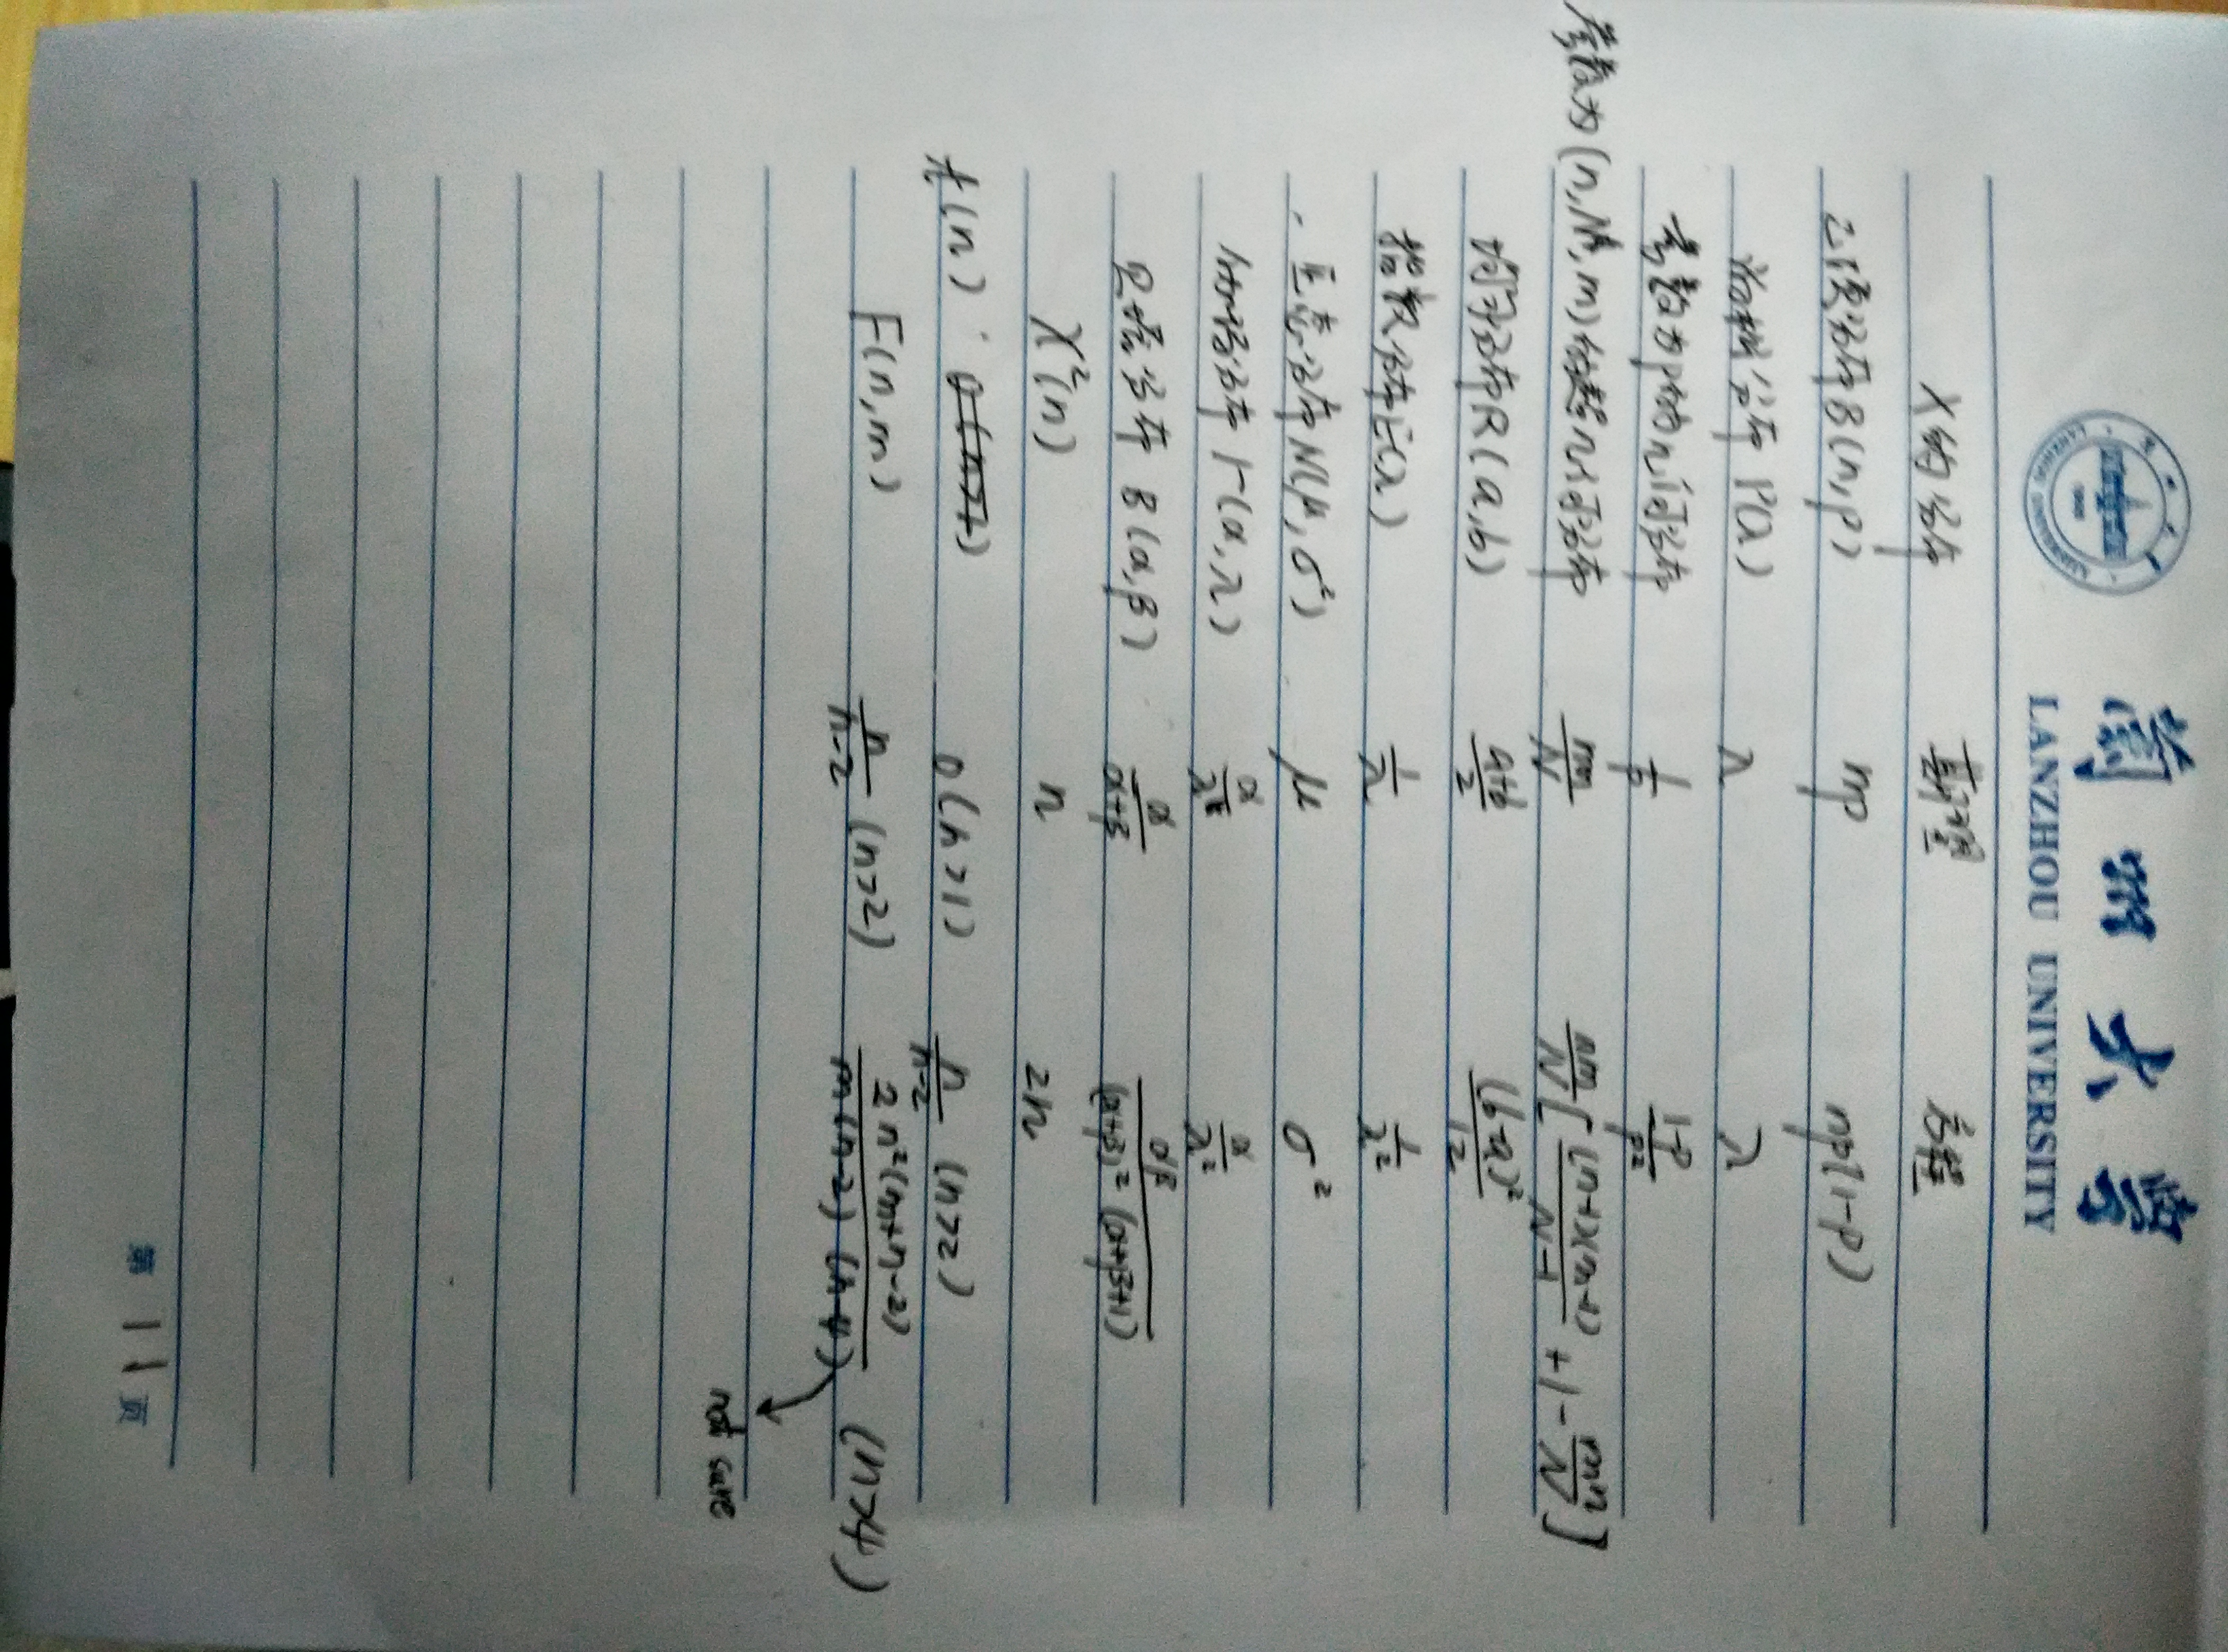 蘭州大學
LANZHOU UNIVERSITY
X的分布 期望 方差
二项分布B(n,p) np np(1-p)
泊松分布 P(λ) λ λ
参数为p的几何分布 1/p (1-p)/p²
参数为(n,N,m)的超几何分布 nm/N nm/N[(n-1)(m-1)/(N-1) + 1 - mn/N]
均匀分布R(a,b) (a+b)/2 (b-a)²/12
指数分布E(λ) 1/λ 1/λ²
正态分布N(μ,σ²) μ σ²
分布 Γ(α,λ) α/λ α/λ²
贝塔分布 B(α,β) α/(α+β) αβ/((α+β)²(α+β+1))
χ²(n) n 2n
t(n) 0(n>1) n/(n-2) (n>2)
F(n,m) n/(n-2) (n>2) 2n²(m+n-2)/(m(n-2)(n-4)) (n>4)
not sure
第 11 页